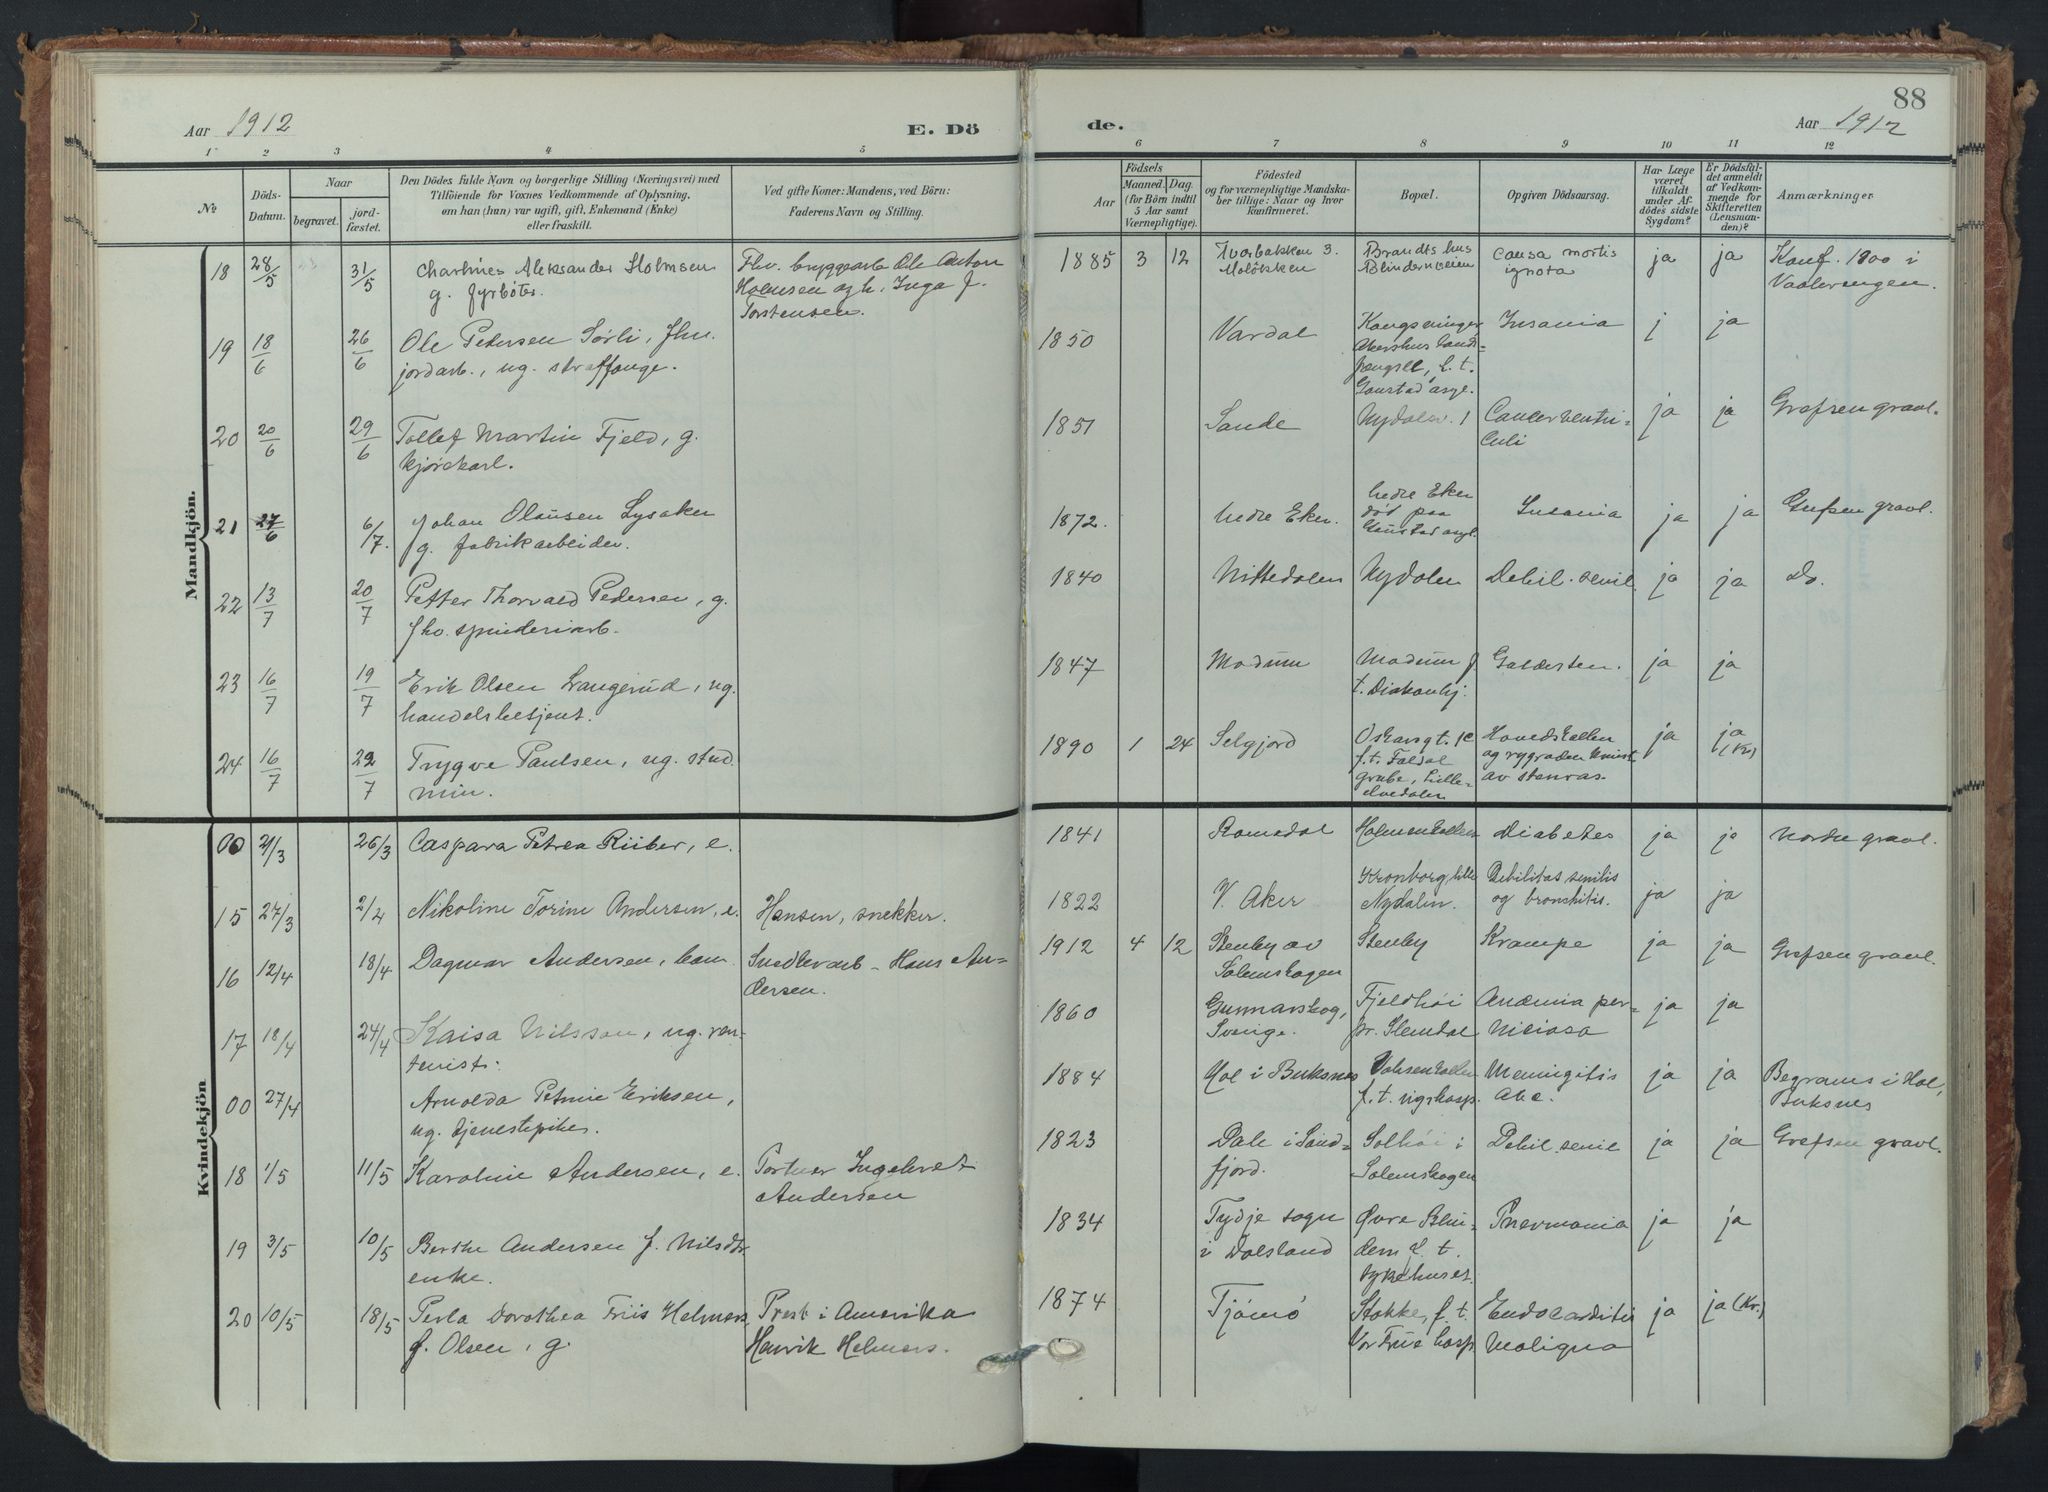 88
Aar 1912
E. Dö
de.
Aar 1912
1 2 3 4 5 6 7 8 9 10 11 12
№
Döds-
Datum.
Naar
begravet.
jord-
fæstet.
Den Dödes fulde Navn og borgerlige Stilling (Næringsvei) med
Tilföiende for Voxnes Vedkommende af Oplysning,
om han (hun) var ugift, gift, Enkemand (Enke)
eller fraskilt.
Ved gifte Koner: Mandens, ved Börn:
Faderens Navn og Stilling.
Födsels
Aar
Maaned. Dag.
(for Börn indtil
5 Aar samt
Værnepligtige).
Födested
og for værnepligtige Mandska-
ber tillige: Naar og hvor
konfirmeret.
Bopæl.
Opgiven Dödsaarsag.
Har Læge
været
tilkaldt
under Af-
dödes sidste
Sygdom?
Er Dödsfal-
det anmeldt
af Vedkom-
mende for
Skifteretten
(Lensman-
den)?
Anmærkninger
Mandkjön.
18 28/5 31/5 Aleksander Holmsen
g. fyrbøter.
Fhv. bryggearb. Ole Anton
Holmsen og h. Inga f.
Torstensen.
1885 3 12
Brandts hus
Blindernveien
causa mortis
ignota
ja ja
Konf. 1900 i
Vaalerengen.
19 18/6 26/6 Ole Pedersen Sørli, fhv.
jordarb., ug. straffange.
1850 Vardal
Kongsvinger
Akershus lands-
fengsel, f. t.
Gaustad asyl.
Insania j ja
20 20/6 29/6 Tollef Martin Fjeld, g.
kjørekarl.
1851 Sande Nydalen Cancer ventri-
culi
ja ja Grefsen gravl.
21 27/6 6/7. Johan Olausen Lysaker
g. fabrikarbeider.
1872. Nedre Eker.
Nedre Eker
død paa
Gaustad asyl.
Insania ja ja Grefsen gravl.
22 13/7 20/7 Petter Thorvald Pedersen, g.
fhv. spinderiarb.
1840 Nittedalen Nydalen Debil. senil. ja ja Do.
23 16/7 19/7 Erik Olsen Langerud, ug.
handelsbetjent.
1847 Modum Modum f.
t. Diakonhj.
Galdesten. ja ja
24 16/7 22/7 Trygve Paulsen, ug. stud.
min.
1890 1 24 Selgjord
Oskarsgt.
f. t. Foldal
grube, Lille-
elvedalen
Hovedskallen
og rygraden knust
av stenras.
ja ja
(Kr)
Kvindekjön
00 21/3 26/3 Caspara Petrea Riiber, e.
1841 Romedal Holmenkollen Diabetes ja ja Nordre gravl.
15 27/3 2/4 Nikoline Torine Andersen, e. Hansen, snekker.
1822 V. Aker
Kronborg, lille
Nydalen.
Debilitas senilis
og bronchitis.
ja ja
16 12/4 18/4 Dagmar Andersen, barn Snedkerarb. Hans An-
dersen.
1912 4 12 Stenby av
Solemskogen
Stenby Krampe ja ja Grefsen gravl.
17 18/4 24/4 Kaisa Nilsson, ug. ren-
tenist.
1860 Gunnarskog,
Sverige.
Fjeldhöi
pr. Slemdal
Anæmia per-
niciosa
ja ja
00 27/4 Arnolda Petrine Eriksen,
ug. tjenestepike.
1884 Hol i Buksnes Voksenkollen
f. t. rigshosp.
Meningitis
ja ja Begraves i Hol,
Buksnes
18 1/5 11/5 Karoline Andersen, e. Portner Ingebret
Andersen
1823 Dale i Sønd-
fjord.
Solhöi i
Solemskogen
Debil. senil ja ja Grefsen gravl.
19 3/5 10/5 Berthe Andersen f. Nilsdtr.
enke.
1834 Tydje sogn
i Dalsland
Øvre Blin-
dern f. t.
sykehuset.
Pnevmonia ja ja
20 10/5 18/5 Perla Dorothea Friis Helmers,
f. Olsen, g.
Prest i Amerika
Henrik Helmers.
1874 Tjömö Stokke, f. t.
Vor Frue hosp
Endocarditis
maligna
ja ja (Kr.)